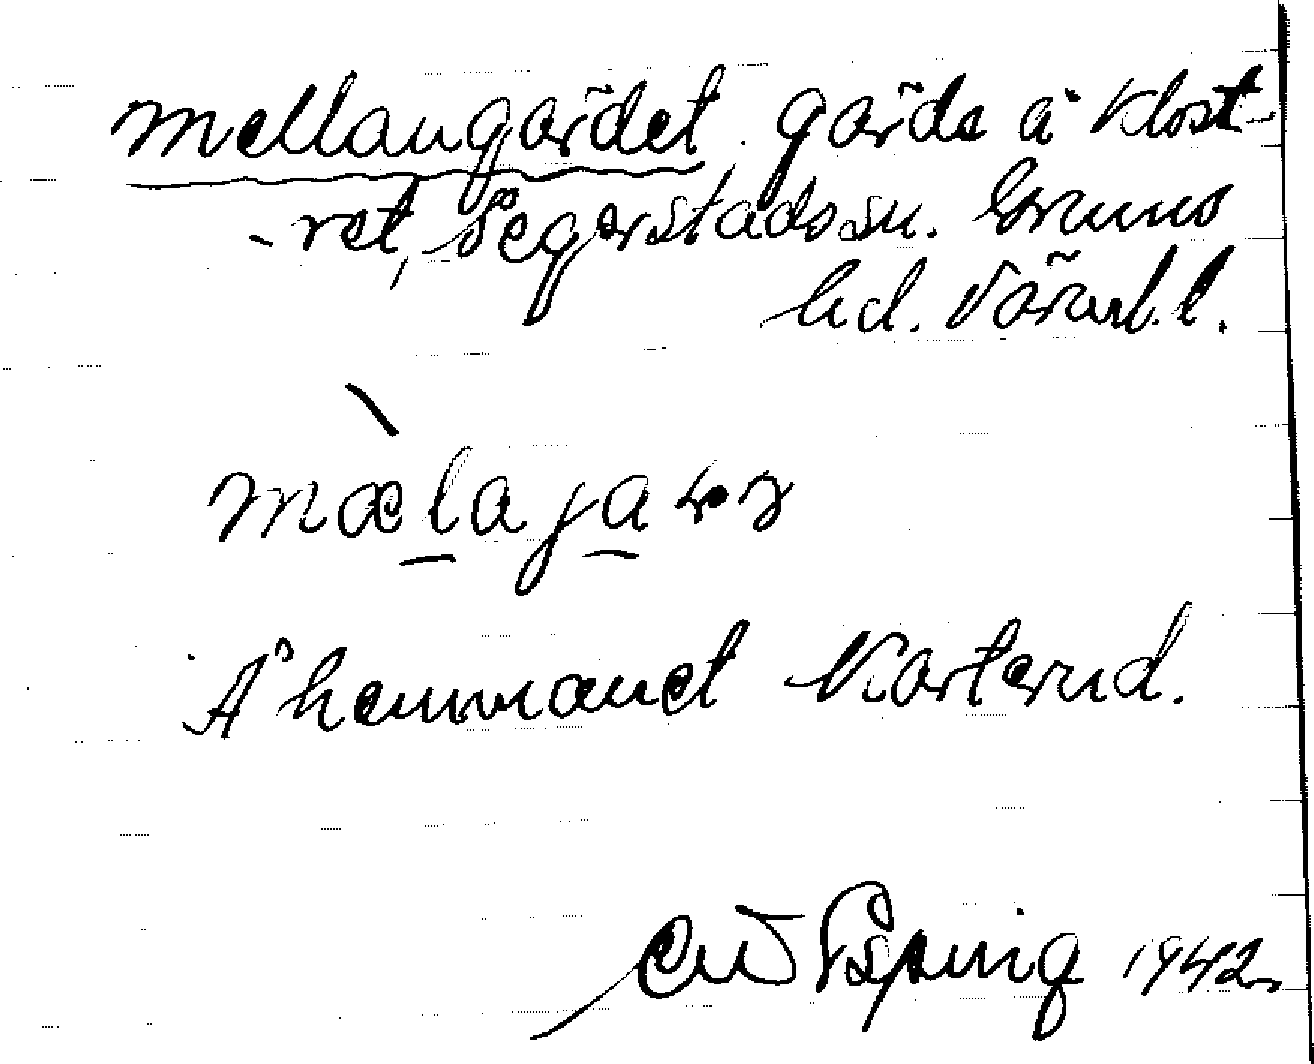 Mellangärdet, gärde å Klost-
-ret, Segerstads sn. Grums
hd. Värml. l.
mælaja
Å hemmanet Karterud.
1942.